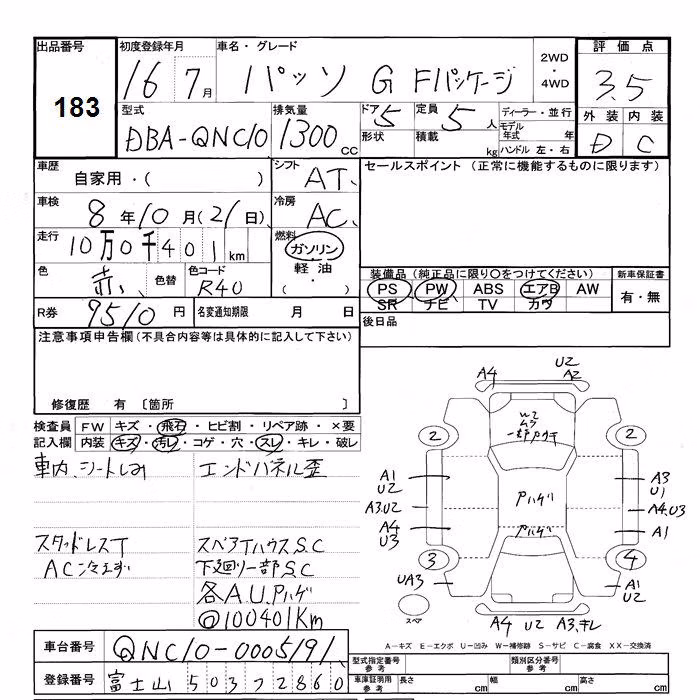 出品番号
183
初度登録年月
16 7月
車名・グレード
パッソ G Fパッケージ
2WD
・
4WD
評価点
3.5
外装 内装
D C
型式
DBA-QNC10
排気量
1300 cc
ドア 5
形状
定員 5 人
積載 kg
ディーラー・並行
モデル年式 年
ハンドル 左・右
車歴
自家用・( )
シフト
AT
車検
8年10月(21日)
冷房
AC
走行
10万0千401km
燃料
ガソリン
軽油
・
( )
色
赤
色替
色コード
R40
R券
9510円
名変通知期限 月 日
セールスポイント (正常に機能するものに限ります)
装備品(純正品に限り○をつけてください)
PS PW ABS エアB AW
SR ナビ TV カワ
新車保証書
有・無
後日品
注意事項申告欄(不具合内容等は具体的に記入して下さい)
修復歴 有 〔箇所 〕
検査員 FW キズ・飛石・ヒビ割・リペア跡・×要
記入欄 内装 キズ・汚レ・コゲ・穴・スレ・キレ・破レ
車内、シートしみ
エンドパネル歪
スタッドレスT
スペアTハウスS.C
AC冷えず
下廻り一部S.C
各A.U.Pハゲ
@100401Km
A4
U2
A2
W2
ムラ
2
2
A1
U2
A3.U2
A4
U3
Pハゲ
Pハゲ
A3
U1
A4.U3
A1
3
4
UA3
A1
U2
スペア
A4 U2 A3.キレ
A-キズ E-エクボ U-凹み W-補修跡 S-サビ C-腐食 XX-交換済
車台番号
QNC10-0005191
登録番号
富士山 503 7 2860
型式指定番号
参考
類別区分番号
参考
車庫証明用
参考
長さ cm
幅 cm
高さ cm